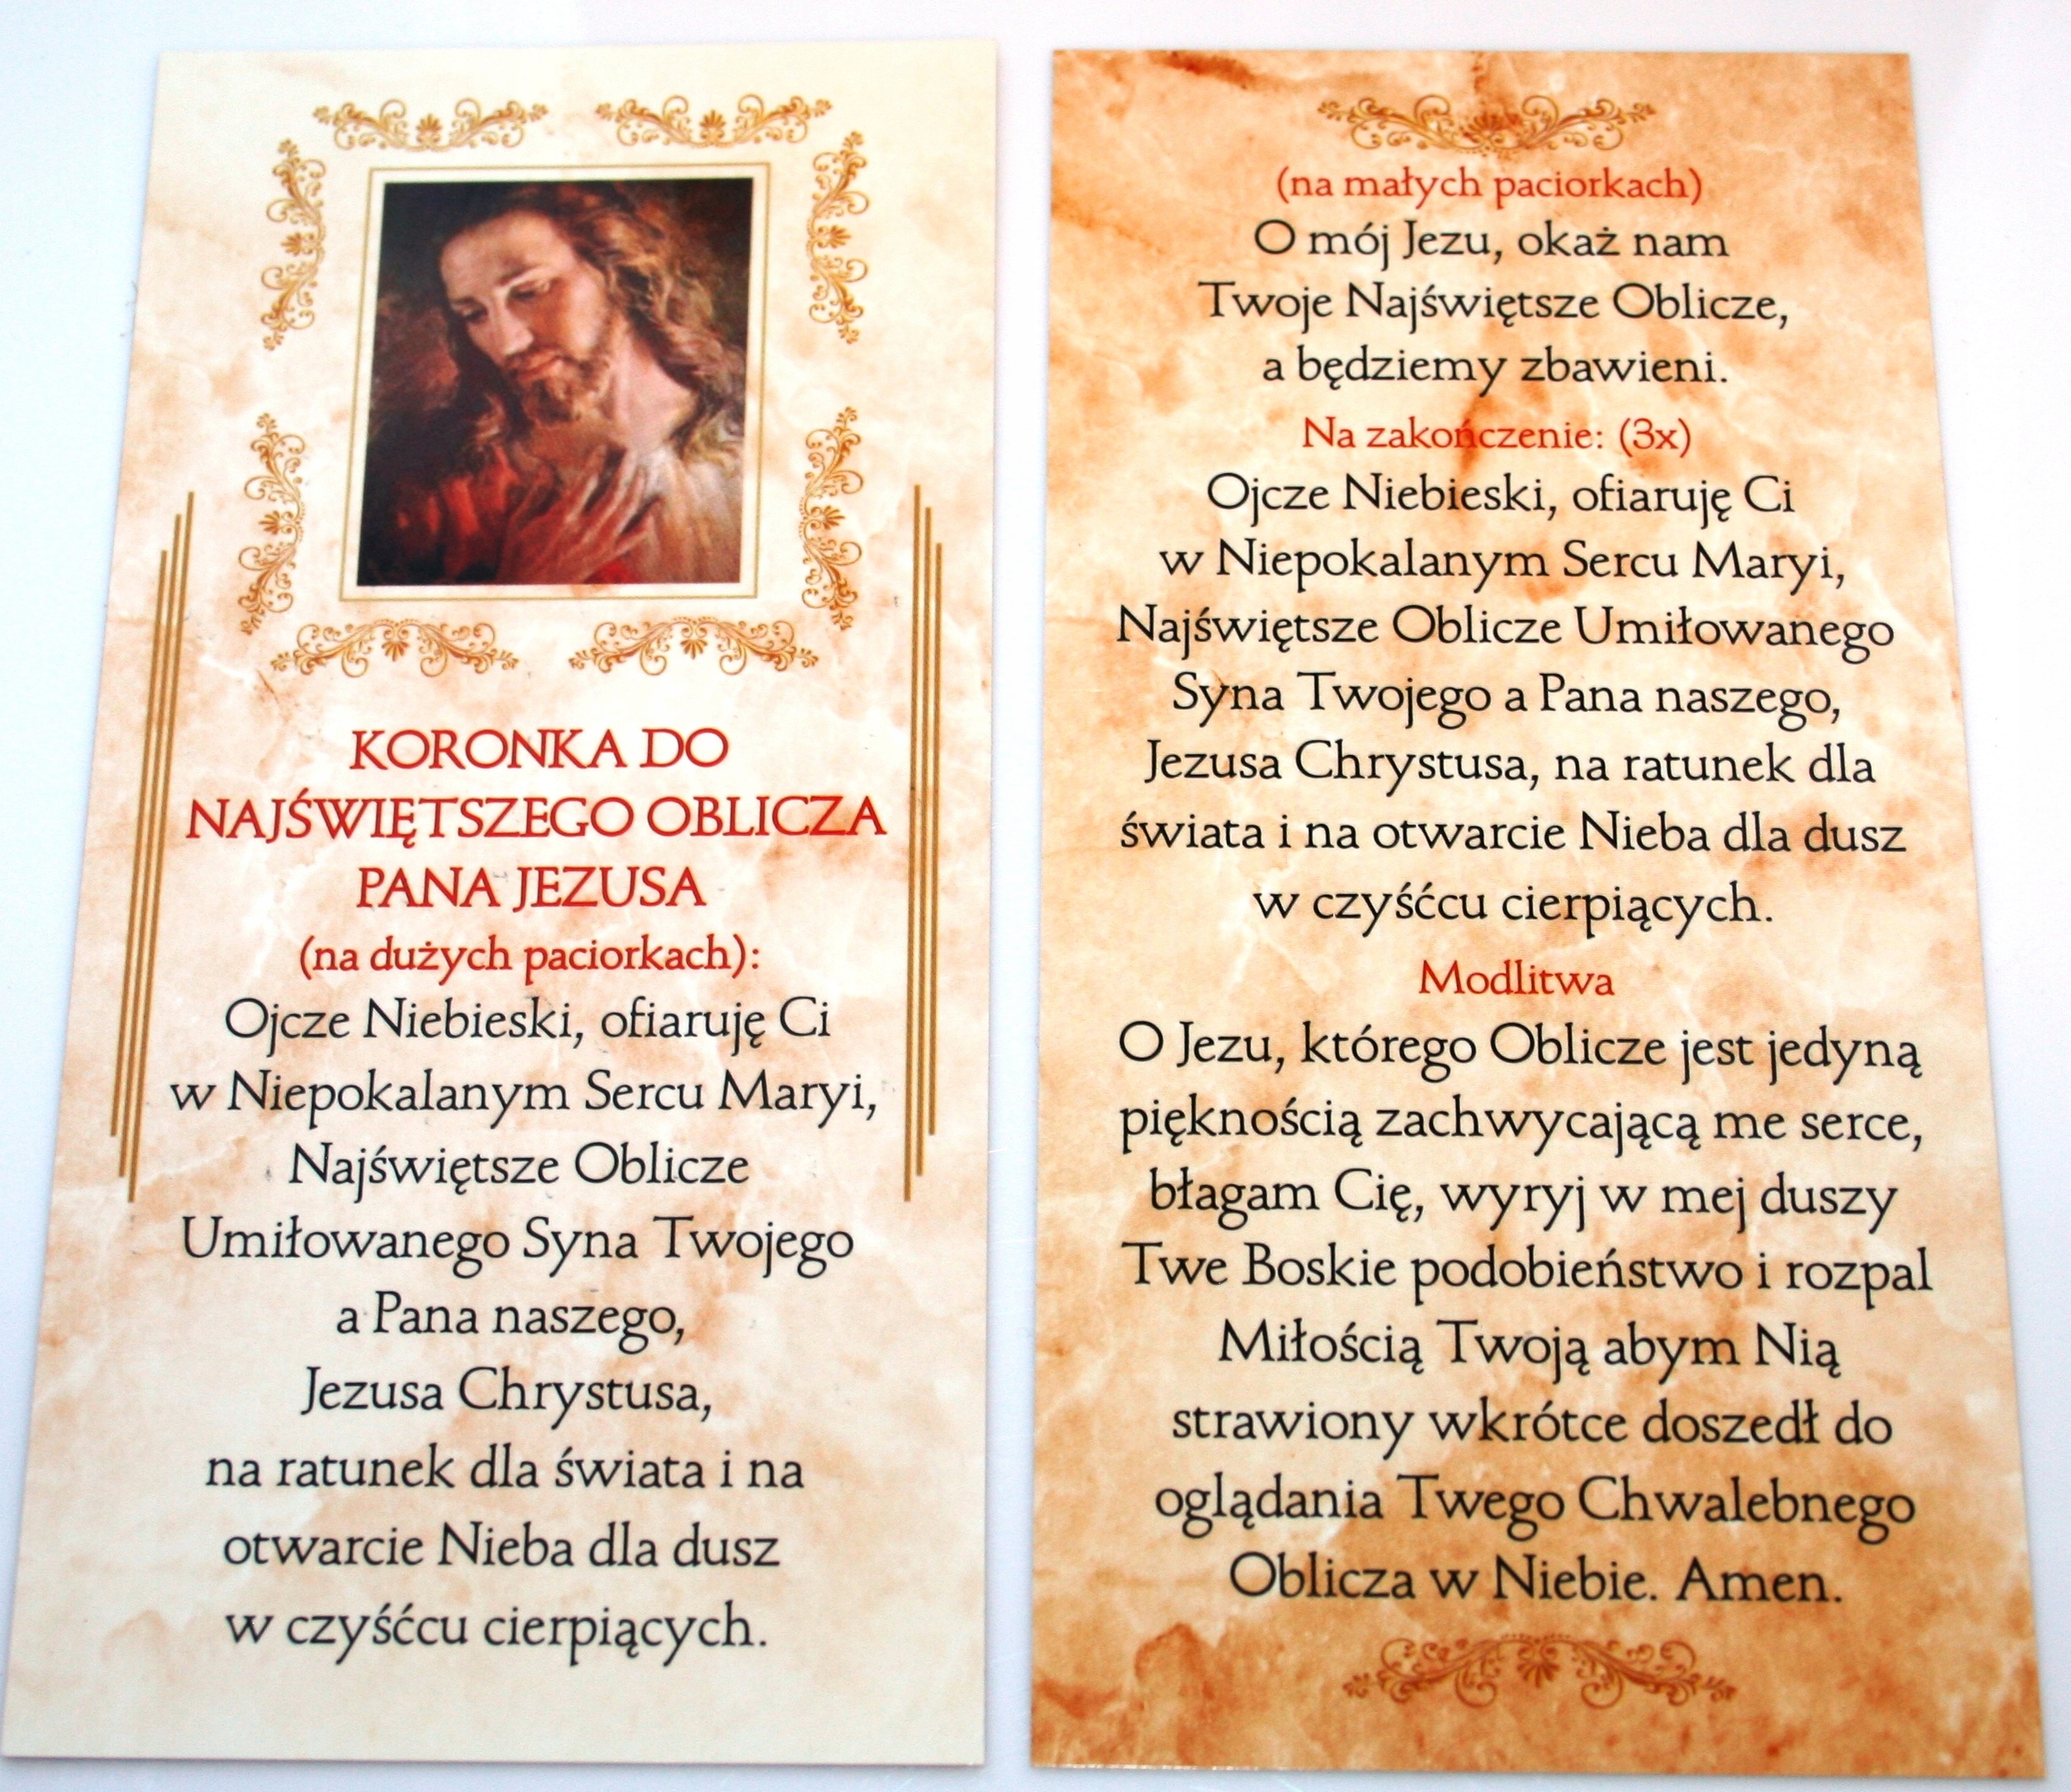 KORONKA DO
NAJŚWIĘTSZEGO OBLICZA
PANA JEZUSA
(na dużych paciorkach):
Ojcze Niebieski, ofiaruję Ci
w Niepokalanym Sercu Maryi,
Najświętsze Oblicze
Umiłowanego Syna Twojego
a Pana naszego,
Jezusa Chrystusa,
na ratunek dla świata i na
otwarcie Nieba dla dusz
w czyśćcu cierpiących.
(na małych paciorkach)
O mój Jezu, okaż nam
Twoje Najświętsze Oblicze,
a będziemy zbawieni.
Na zakończenie: (3x)
Ojcze Niebieski, ofiaruję Ci
w Niepokalanym Sercu Maryi,
Najświętsze Oblicze Umiłowanego
Syna Twojego a Pana naszego,
Jezusa Chrystusa, na ratunek dla
świata i na otwarcie Nieba dla dusz
w czyśćcu cierpiących.
Modlitwa
O Jezu, którego Oblicze jest jedyną
pięknością zachwycającą me serce,
błagam Cię, wyryj w mej duszy
Twe Boskie podobieństwo i rozpal
Miłością Twoją abym Nią
strawiony wkrótce doszedł do
oglądania Twego Chwalebnego
Oblicza w Niebie. Amen.